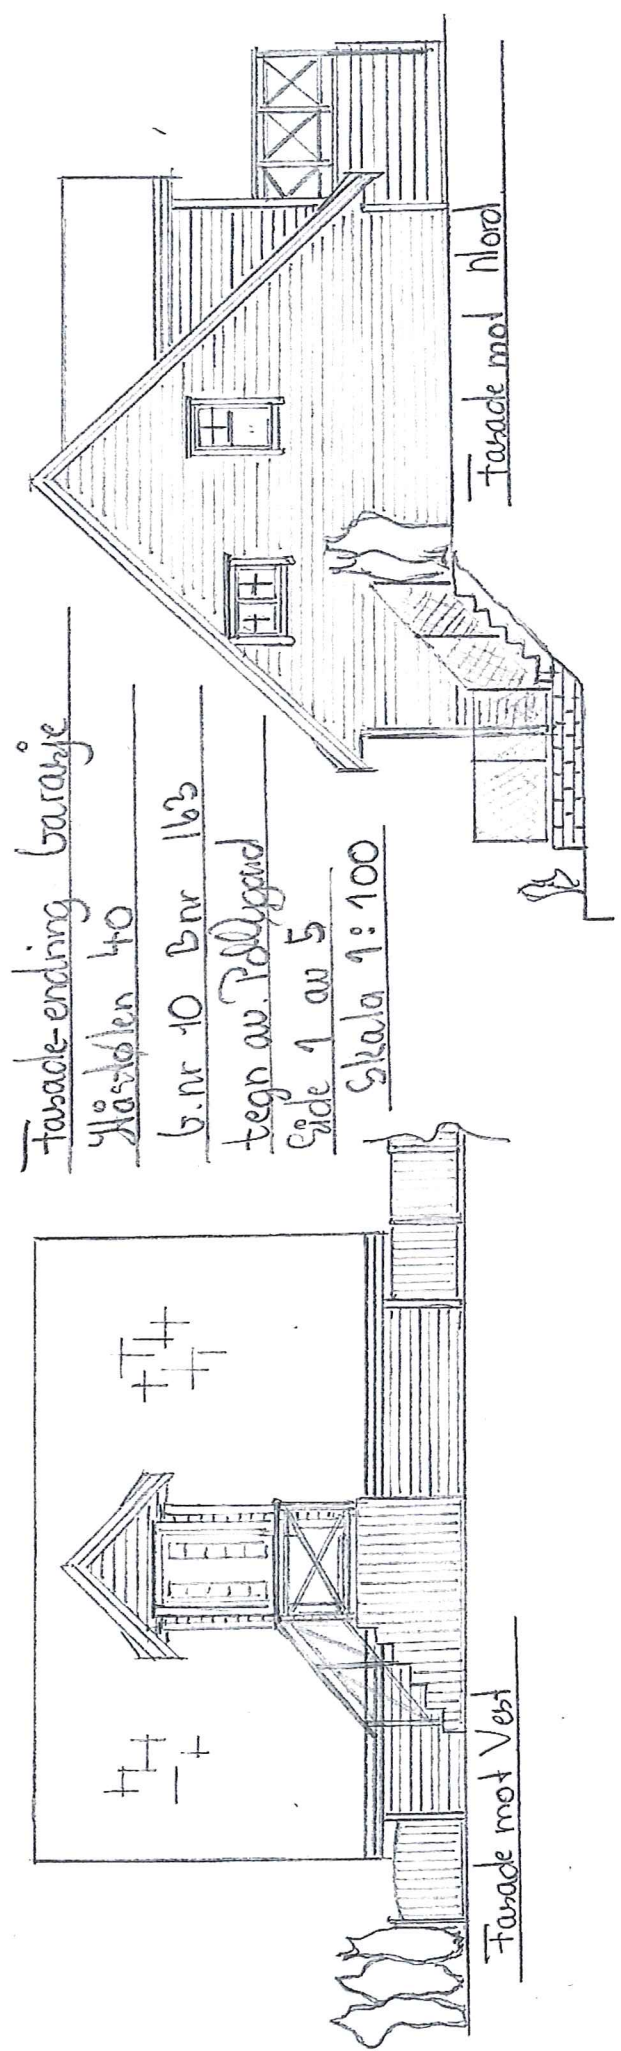 Fasade-endring Garasje
40
G.nr 10 Bnr 163
tegn av.
Side 1 av 5
Skala 1:100
Fasade mot Nord
Fasade mot Vest